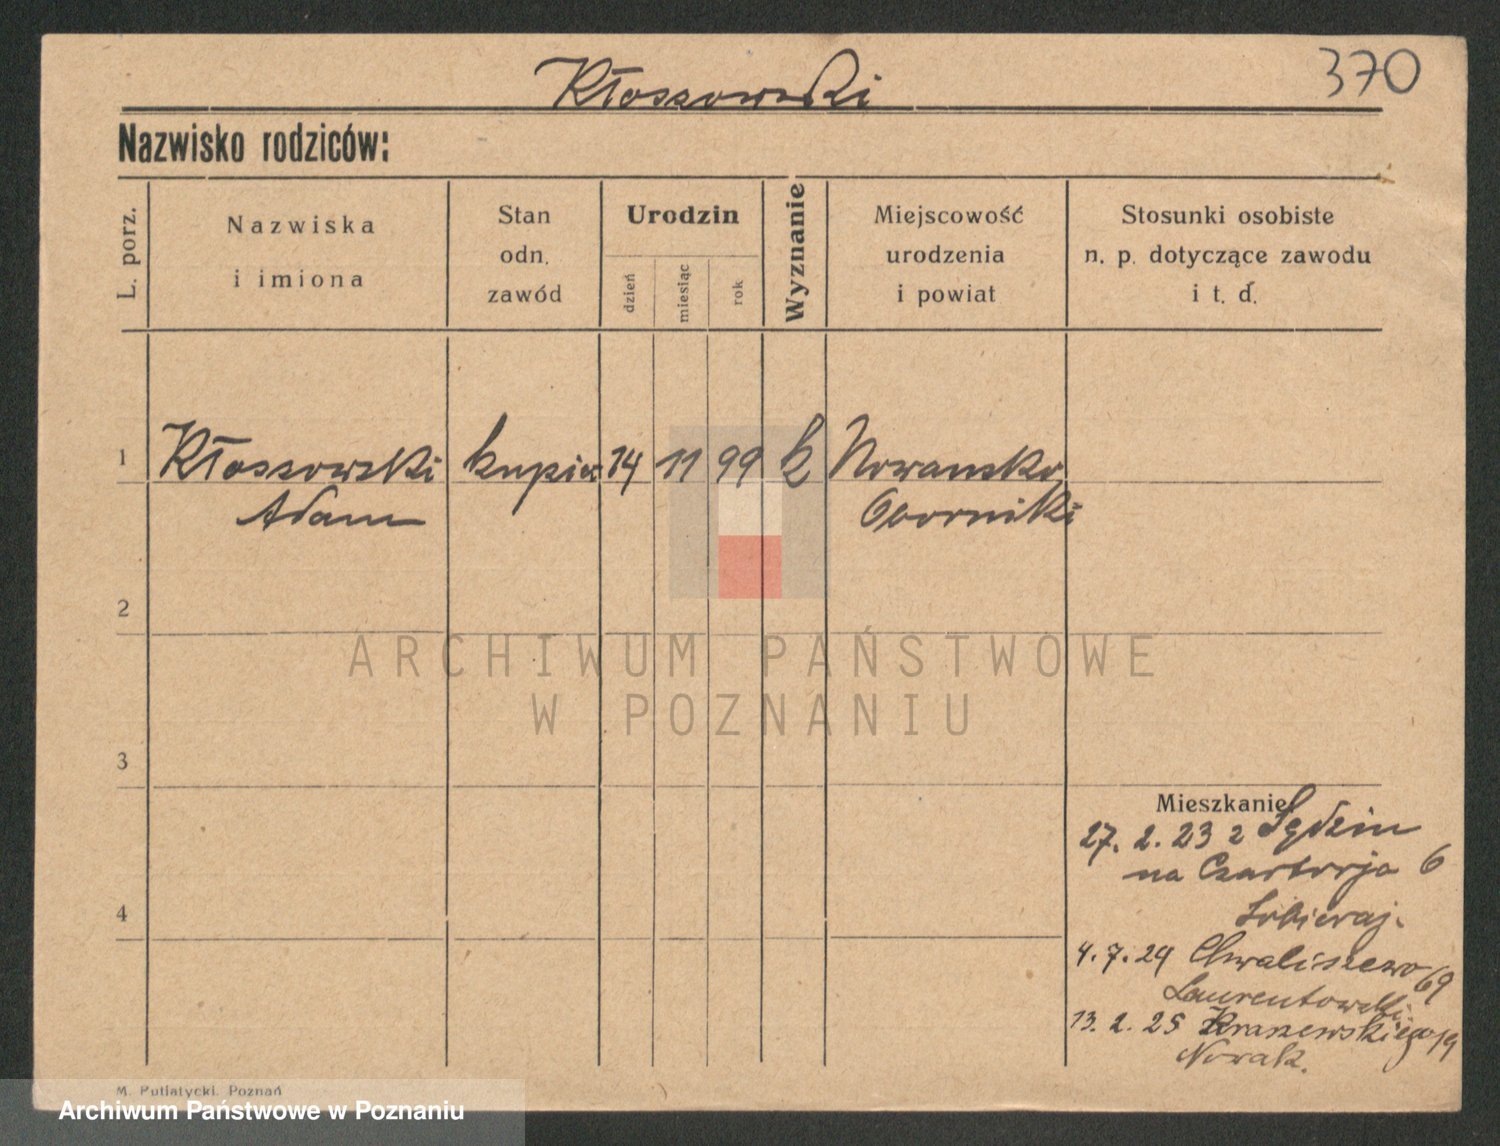 Kłossowski
370
Nazwisko rodziców:
L. porz.
Nazwiska
i imiona
Stan
odn.
zawód
Urodzin
dzień
miesiąc
rok
Wyznanie
Miejscowość
urodzenia
i powiat
Stosunki osobiste
n. p. dotyczące zawodu
i t. d.
1 Kłossowski kupiec 14 11 99 k
Adam Oborniki
2
3
4
Mieszkanie
27. 2. 23 z
na Czartorja 6
4. 7. 24 Chwaliszewo 69
Laurentowski
13. 2. 25 Kraszewskiego 19
Nowak.
ARCHIWUM PAŃSTWOWE
W POZNANIU
M. Putiatycki, Poznań
Archiwum Państwowe w Poznaniu